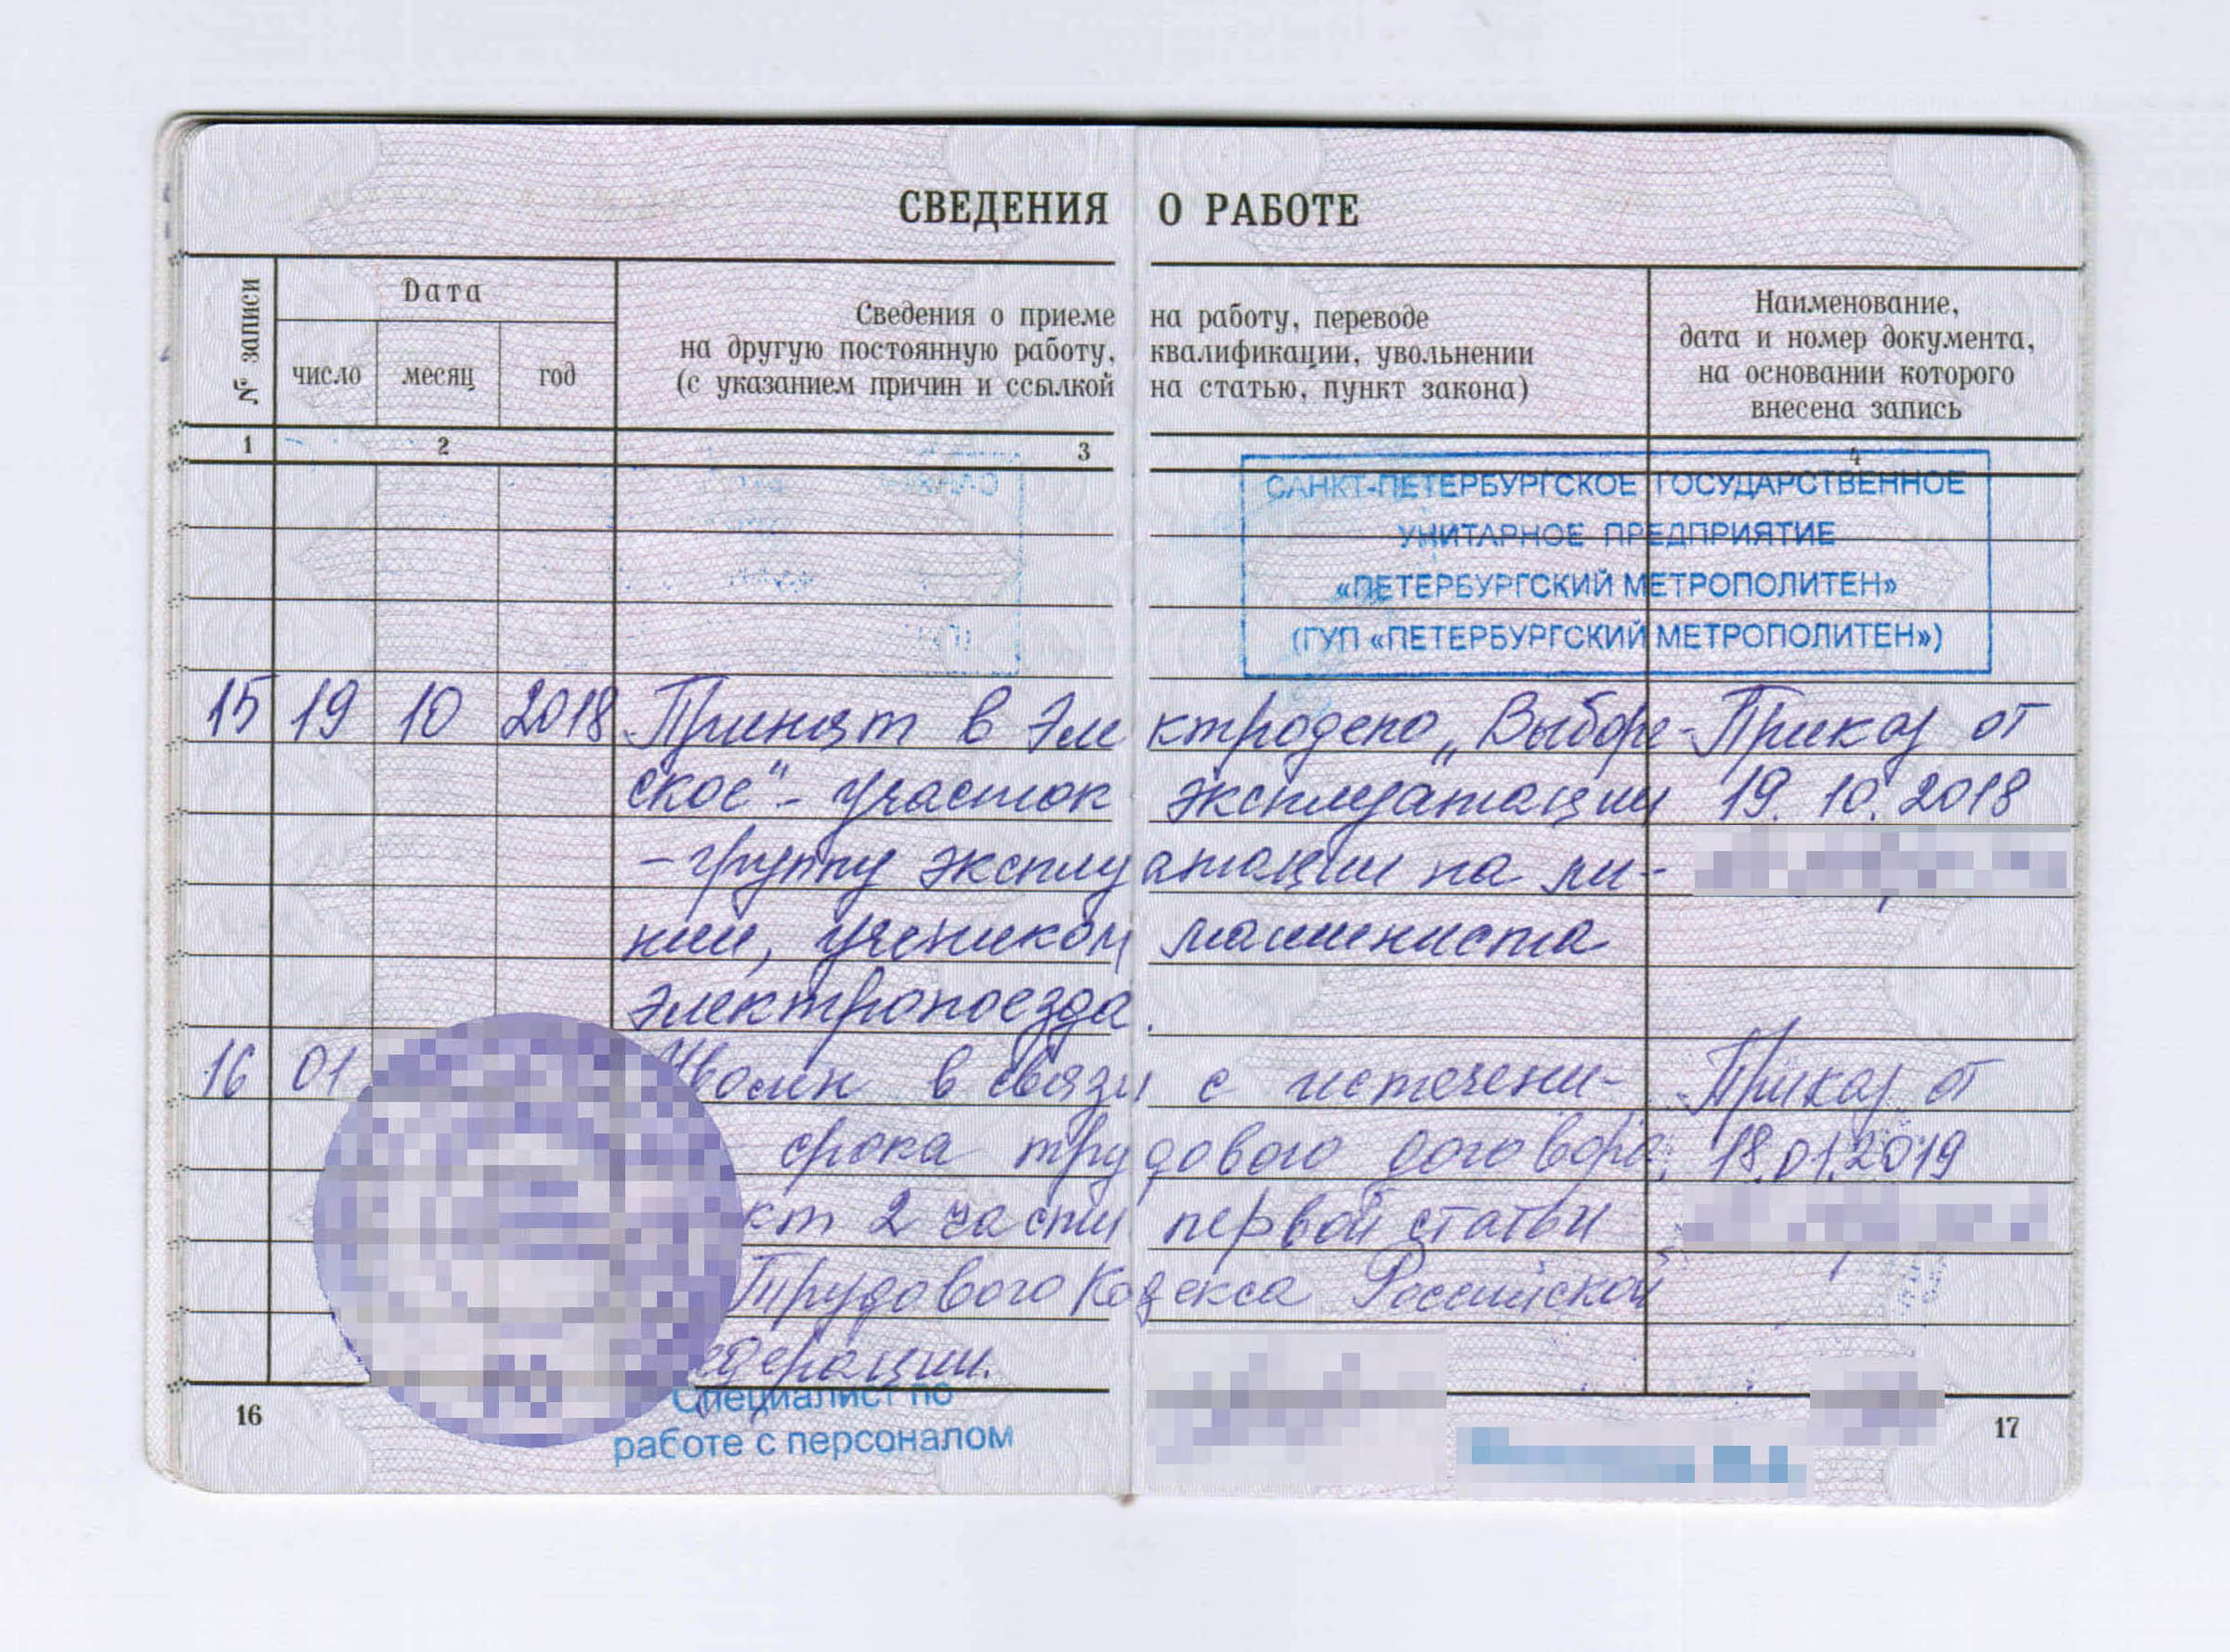 СВЕДЕНИЯ О РАБОТЕ
№ записи
Дата
число месяц год
Сведения о приеме на работу, переводе
на другую постоянную работу, квалификации, увольнении
(с указанием причин и ссылкой на статью, пункт закона)
Наименование,
дата и номер документа,
на основании которого
внесена запись
1 2 3 4
САНКТ-ПЕТЕРБУРГСКОЕ ГОСУДАРСТВЕННОЕ
УНИТАРНОЕ ПРЕДПРИЯТИЕ
«ПЕТЕРБУРГСКИЙ МЕТРОПОЛИТЕН»
(ГУП «ПЕТЕРБУРГСКИЙ МЕТРОПОЛИТЕН»)
15 19 10 2018 Принят в Электродепо „Выборг- Приказ от
ское" - участок эксплуатации 19.10.2018
- группу эксплуатации на ли-
нии, учеником машиниста
электропоезда.
16 01 Уволен в связи с истечени- Приказ от
срока трудового договора, 18.01.2019
кт 2 части первой статьи
Трудового Кодекса Российской
едерации.
Специалист по
работе с персоналом
16 17